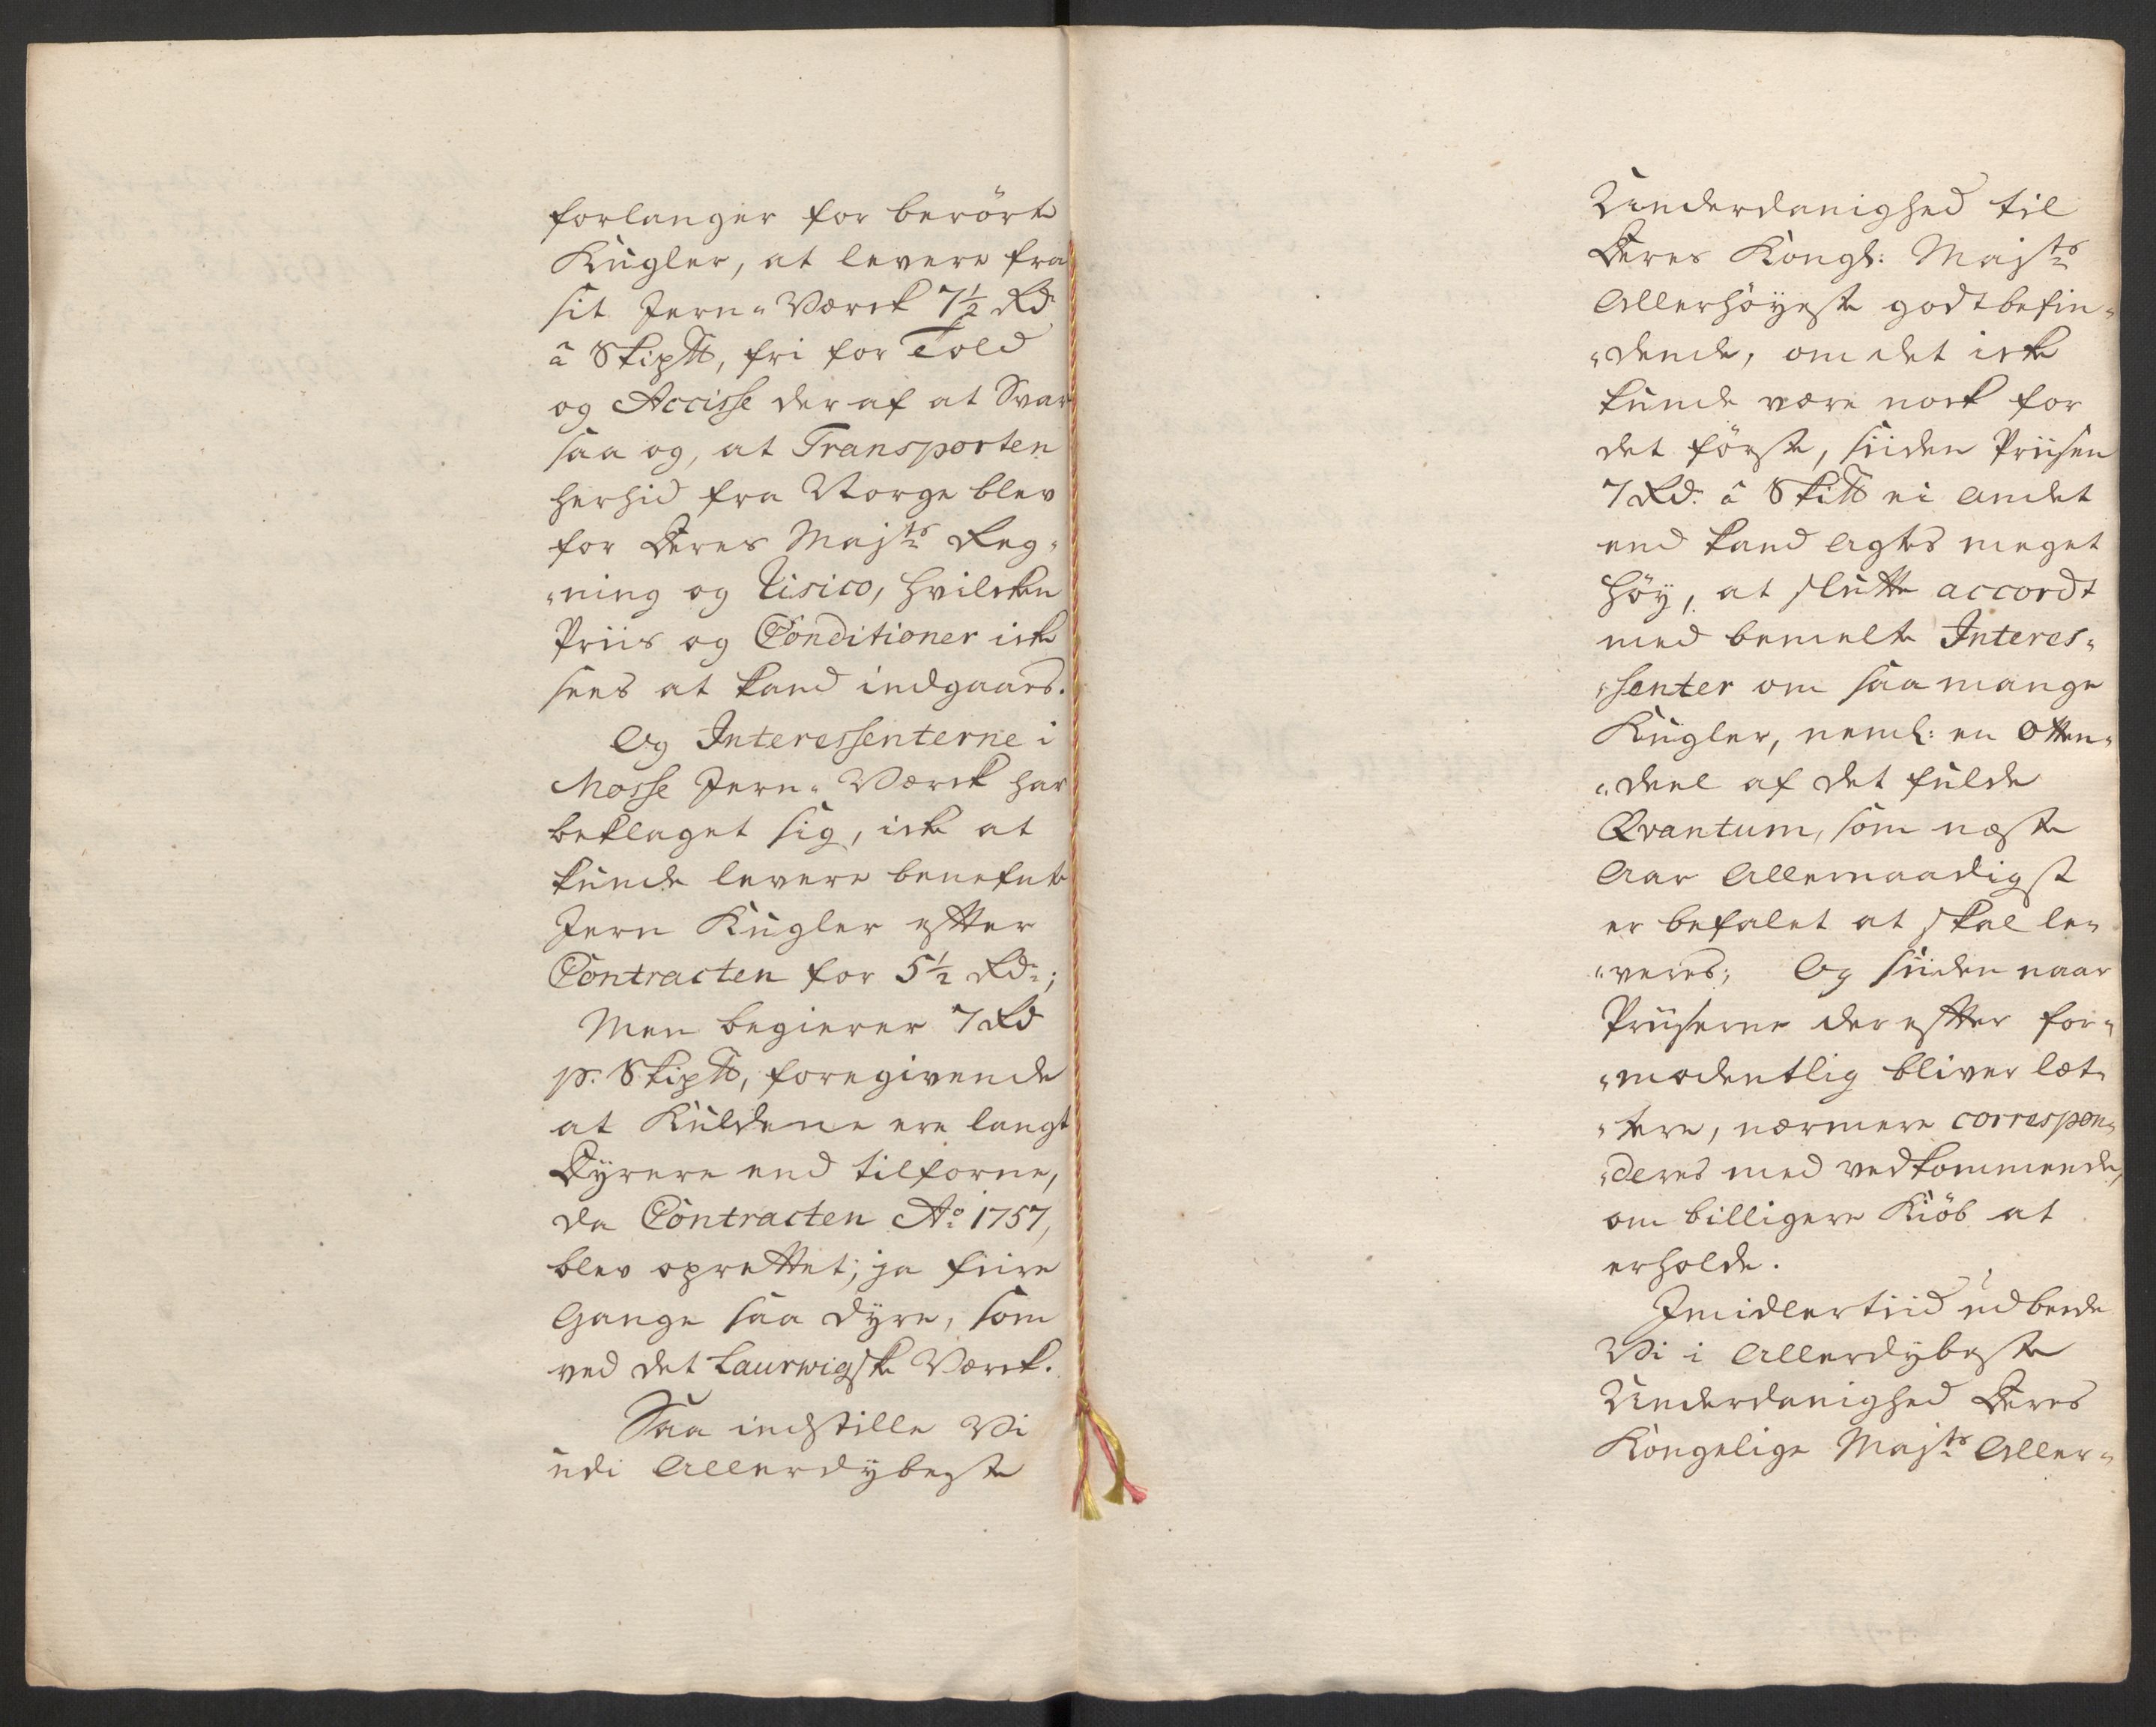 forlanger for berörte
Kugler, at levere fra
sit Jern=Værck 7½ Rd
â Skip℔, fri for Told
og Accisse deraf at Svar
saa og, at Transporten
herhid fra Norge blev
for Deres Majts Reg=
=ning og Risico, hvilcken
Priis og Conditioner icke
sees at kand indgaaes.
Og Interessenterne i
Mosse Jern=Værck har
beklaget sig, icke at
kunde levere benefnte
Jern Kugler efter
Contracten for 5½ Rdr;
Men begierer 7 Rd
pr. Skip℔, foregivende
at Kullene ere langt
Dyrere end tilforne,
da Contracten Ao 1757,
blev oprettet; ja fiire
Gange saa dyre, som
ved det Laurwigske Værck.
Saa indstille Vi
udi Allerdybeste
Underdanighed til
Deres Kongl: Majts
Allerhöyeste godtbefin=
=dende, om det icke
kunde være nock for
det förste, siiden Priisen
7 Rd. â Ski℔ ei andet
end kand agtes meget
höy, at slutte accordt
med bemelte Interes=
=senter om saa mange
Kugler, neml: en Otten=
=deel af det fulde
Qvantum, som næste
Aar Allernaadigst
er befalet at skal le=
=veres; Og siiden naar
Priiserne derefter for=
=modentlig bliver læt=
=tere, nærmere correspon=
=deres med vedkommende,
om billigere Kiöb at
erholde.
Imidlertiid udbede
Vi i Allerdybeste
Underdanighed Deres
Kongelige Majts Aller=